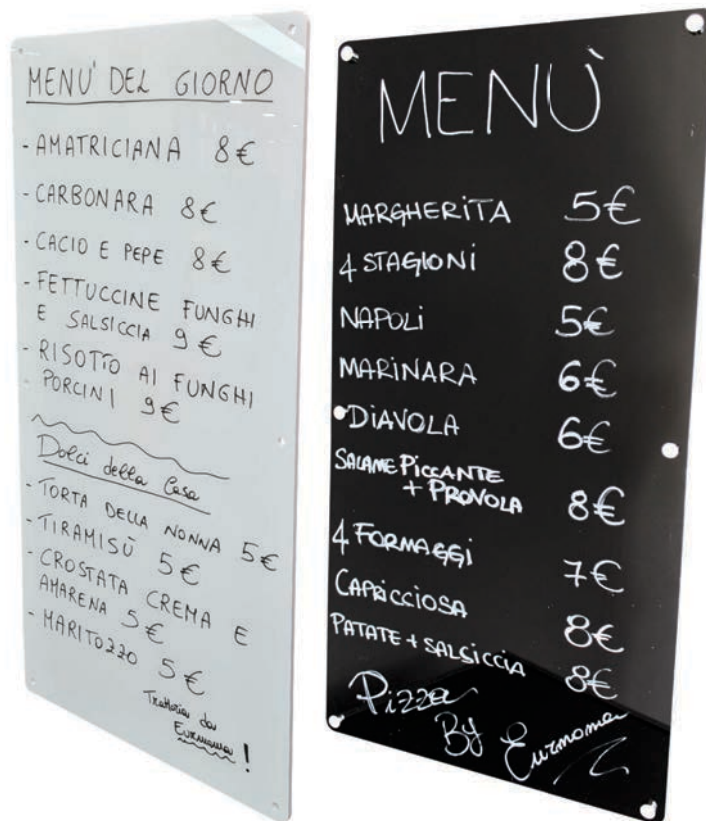 MENU' DEL GIORNO
- AMATRICIANA 8€
- CARBONARA 8€
- CACIO E PEPE 8€
- FETTUCCINE FUNGHI
E SALSICCIA 9€
- RISOTTO AI FUNGHI
- PORCINI 9€
Dolci della Casa
- TORTA DELLA NONNA 5€
- TIRAMISÙ 5€
- CROSTATA CREMA E
AMARENA 5€
- MARITOZZO 5€
Trattoria da
Eurmoma !
MENÙ
MARGHERITA 5€
4 STAGIONI 8€
NAPOLI 5€
MARINARA 6€
DIAVOLA 6€
SALAME PICCANTE
+ PROVOLA 8€
4 FORMAGGI 7€
CAPRICCIOSA 8€
PATATE + SALSICCIA 8€
Pizza
By Eurmoma